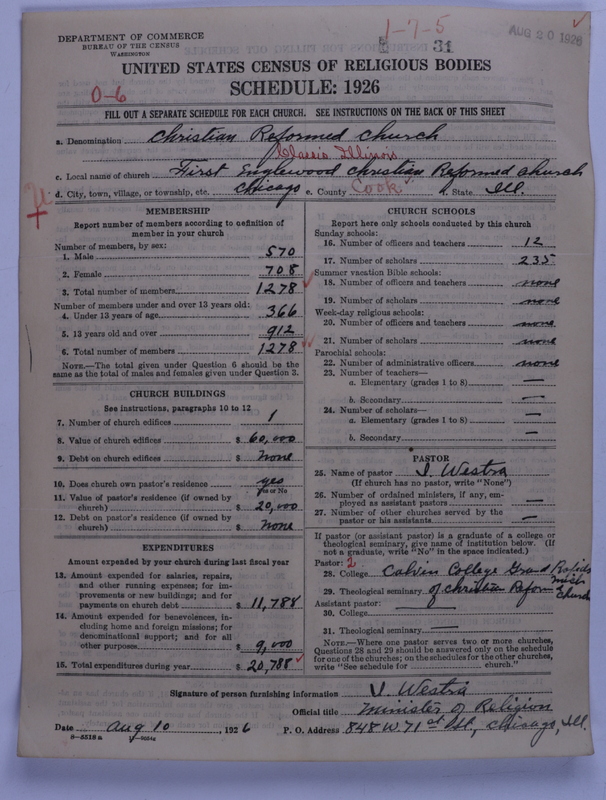 1-7-5
AUG 20 1926
31
DEPARTMENT OF COMMERCE
BUREAU OF THE CENSUS
WASHINGTON
UNITED STATES CENSUS OF RELIGIOUS BODIES
SCHEDULE: 1926
0-6
FILL OUT A SEPARATE SCHEDULE FOR EACH CHURCH. SEE INSTRUCTIONS ON THE BACK OF THIS SHEET
a. Denomination Christian Reformed Church
Classis Illinois
c. Local name of church First Englewood Christian Reformed Church
d. City, town, village, or township, etc. Chicago e. County Cook f. State Ill.
MEMBERSHIP
Report number of members according to definition of
member in your church
Number of members, by sex:
1. Male 570
2. Female 708
3. Total number of members 1278
Number of members under and over 13 years old:
4. Under 13 years of age 366
5. 13 years old and over 912
6. Total number of members 1278
NOTE.—The total given under Question 6 should be the
same as the total of males and females given under Question 3.
CHURCH BUILDINGS
See instructions, paragraphs 10 to 12
7. Number of church edifices 1
8. Value of church edifices $ 60,000
9. Debt on church edifices $ None
10. Does church own pastor's residence yes
Yes or No
11. Value of pastor's residence (if owned by
church) $ 20,000
12. Debt on pastor's residence (if owned by
church) $ None
EXPENDITURES
Amount expended by your church during last fiscal year
13. Amount expended for salaries, repairs,
and other running expenses; for im-
provements or new buildings; and for
payments on church debt $ 11,788
14. Amount expended for benevolences, in-
cluding home and foreign missions; for
denominational support; and for all
other purposes $ 9,000
15. Total expenditures during year $ 20,788
CHURCH SCHOOLS
Report here only schools conducted by this church
Sunday schools:
16. Number of officers and teachers 12
17. Number of scholars 235
Summer vacation Bible schools:
18. Number of officers and teachers none
19. Number of scholars none
Week-day religious schools:
20. Number of officers and teachers none
21. Number of scholars none
Parochial schools:
22. Number of administrative officers none
23. Number of teachers—
a. Elementary (grades 1 to 8) —
b. Secondary —
24. Number of scholars—
a. Elementary (grades 1 to 8) —
b. Secondary —
PASTOR
25. Name of pastor J. Westra
(If church has no pastor, write "None")
26. Number of ordained ministers, if any, em-
ployed as assistant pastors —
27. Number of other churches served by the
pastor or his assistants —
If pastor (or assistant pastor) is a graduate of a college or
theological seminary, give name of institution below. (If
not a graduate, write "No" in the space indicated.)
Pastor: 2
28. College Calvin College Grand Rapids
Mich
29. Theological seminary of Christian Reform. Church
Assistant pastor:
30. College
31. Theological seminary —
NOTE.—Where one pastor serves two or more churches,
Questions 28 and 29 should be answered only on the schedule
for one of the churches; on the schedules for the other churches,
write "See schedule for church."
Signature of person furnishing information J. Westra
Official title Minister of Religion
Date Aug 10, 1926 P. O. Address 848 W 71st St., Chicago, Ill.
8-5518 a